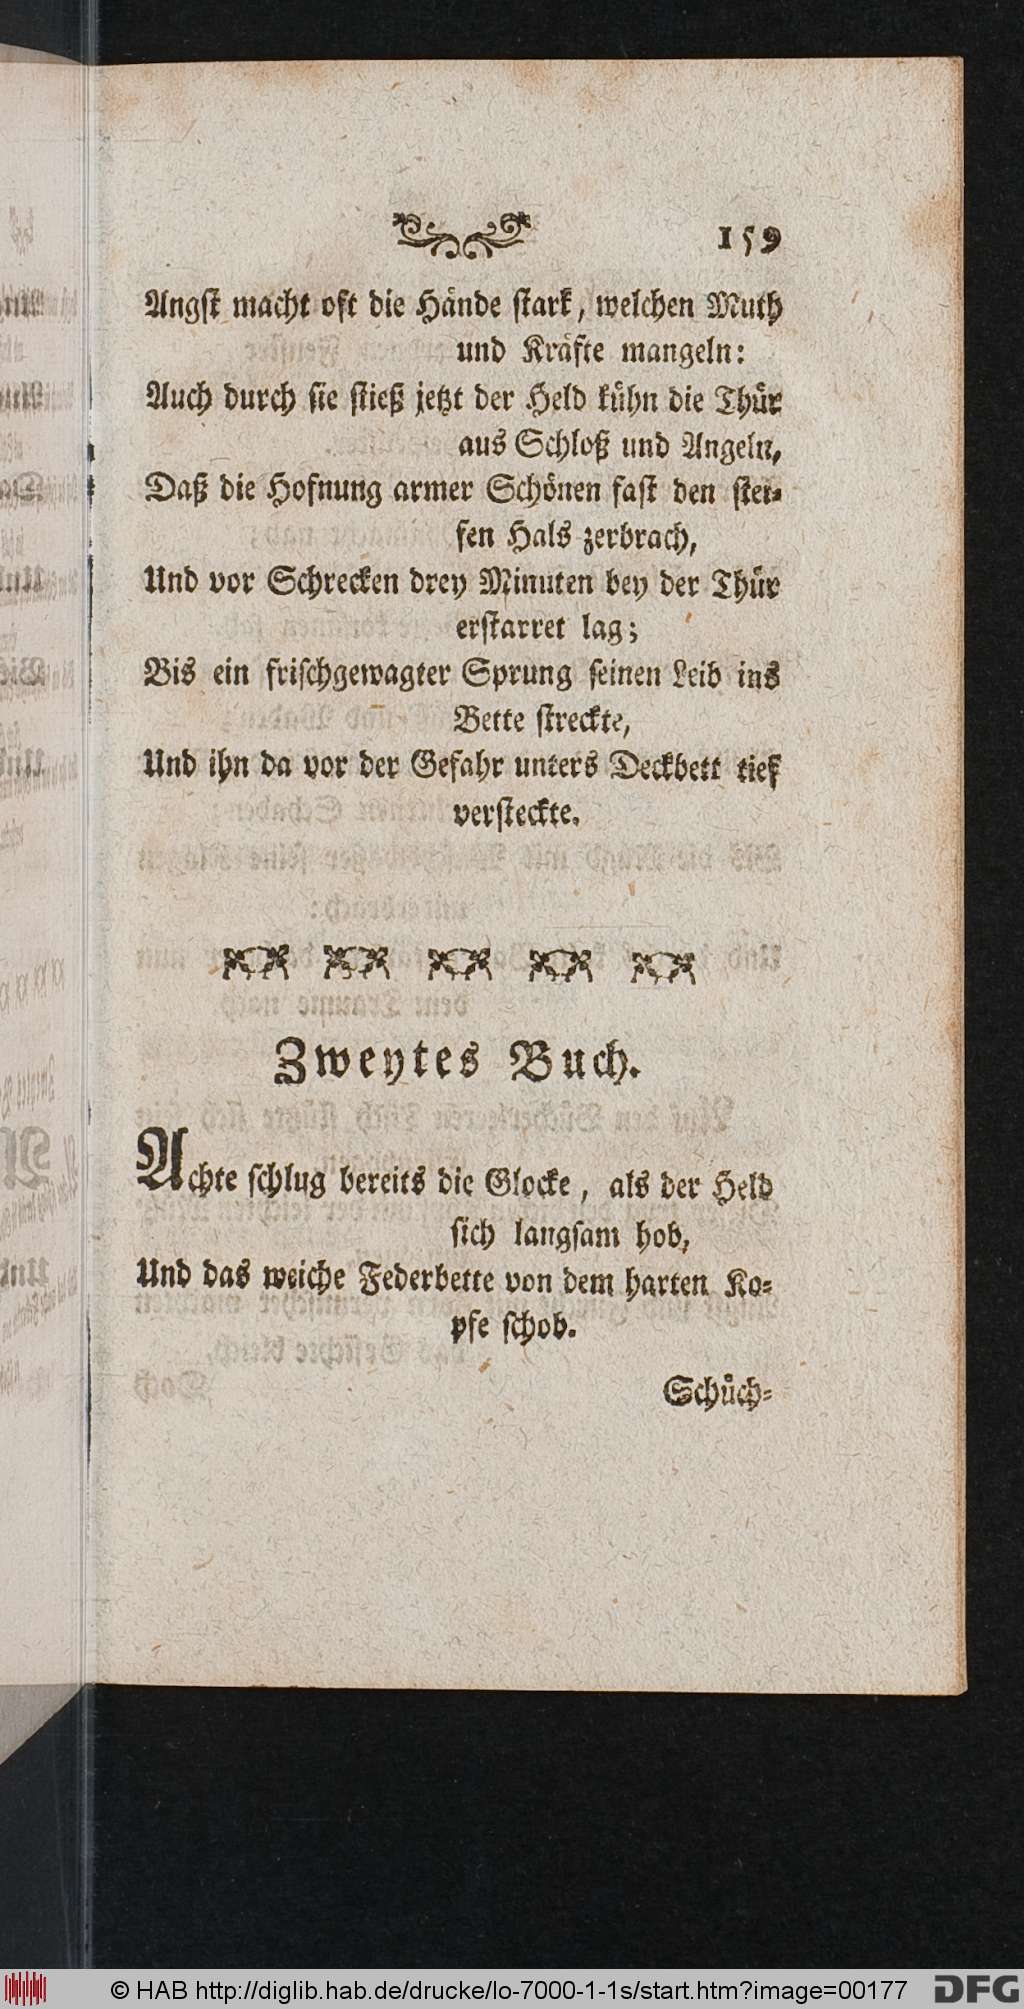 159
Angst macht oft die Hände stark, welchen Muth
und Kräfte mangeln:
Auch durch sie stieß jetzt der Held kühn die Thür
aus Schloß und Angeln,
Daß die Hofnung armer Schönen fast den stei-
fen Hals zerbrach,
Und vor Schrecken drey Minuten bey der Thür
erstarret lag;
Bis ein frischgewagter Sprung seinen Leib ins
Bette streckte,
Und ihn da vor der Gefahr unters Deckbett tief
versteckte.
Zweytes Buch.
Achte schlug bereits die Glocke, als der Held
sich langsam hob,
Und das weiche Federbette von dem harten Ko-
pfe schob.
Schüch-
© HAB http://diglib.hab.de/drucke/lo-7000-1-1s/start.htm?image=00177
DFG